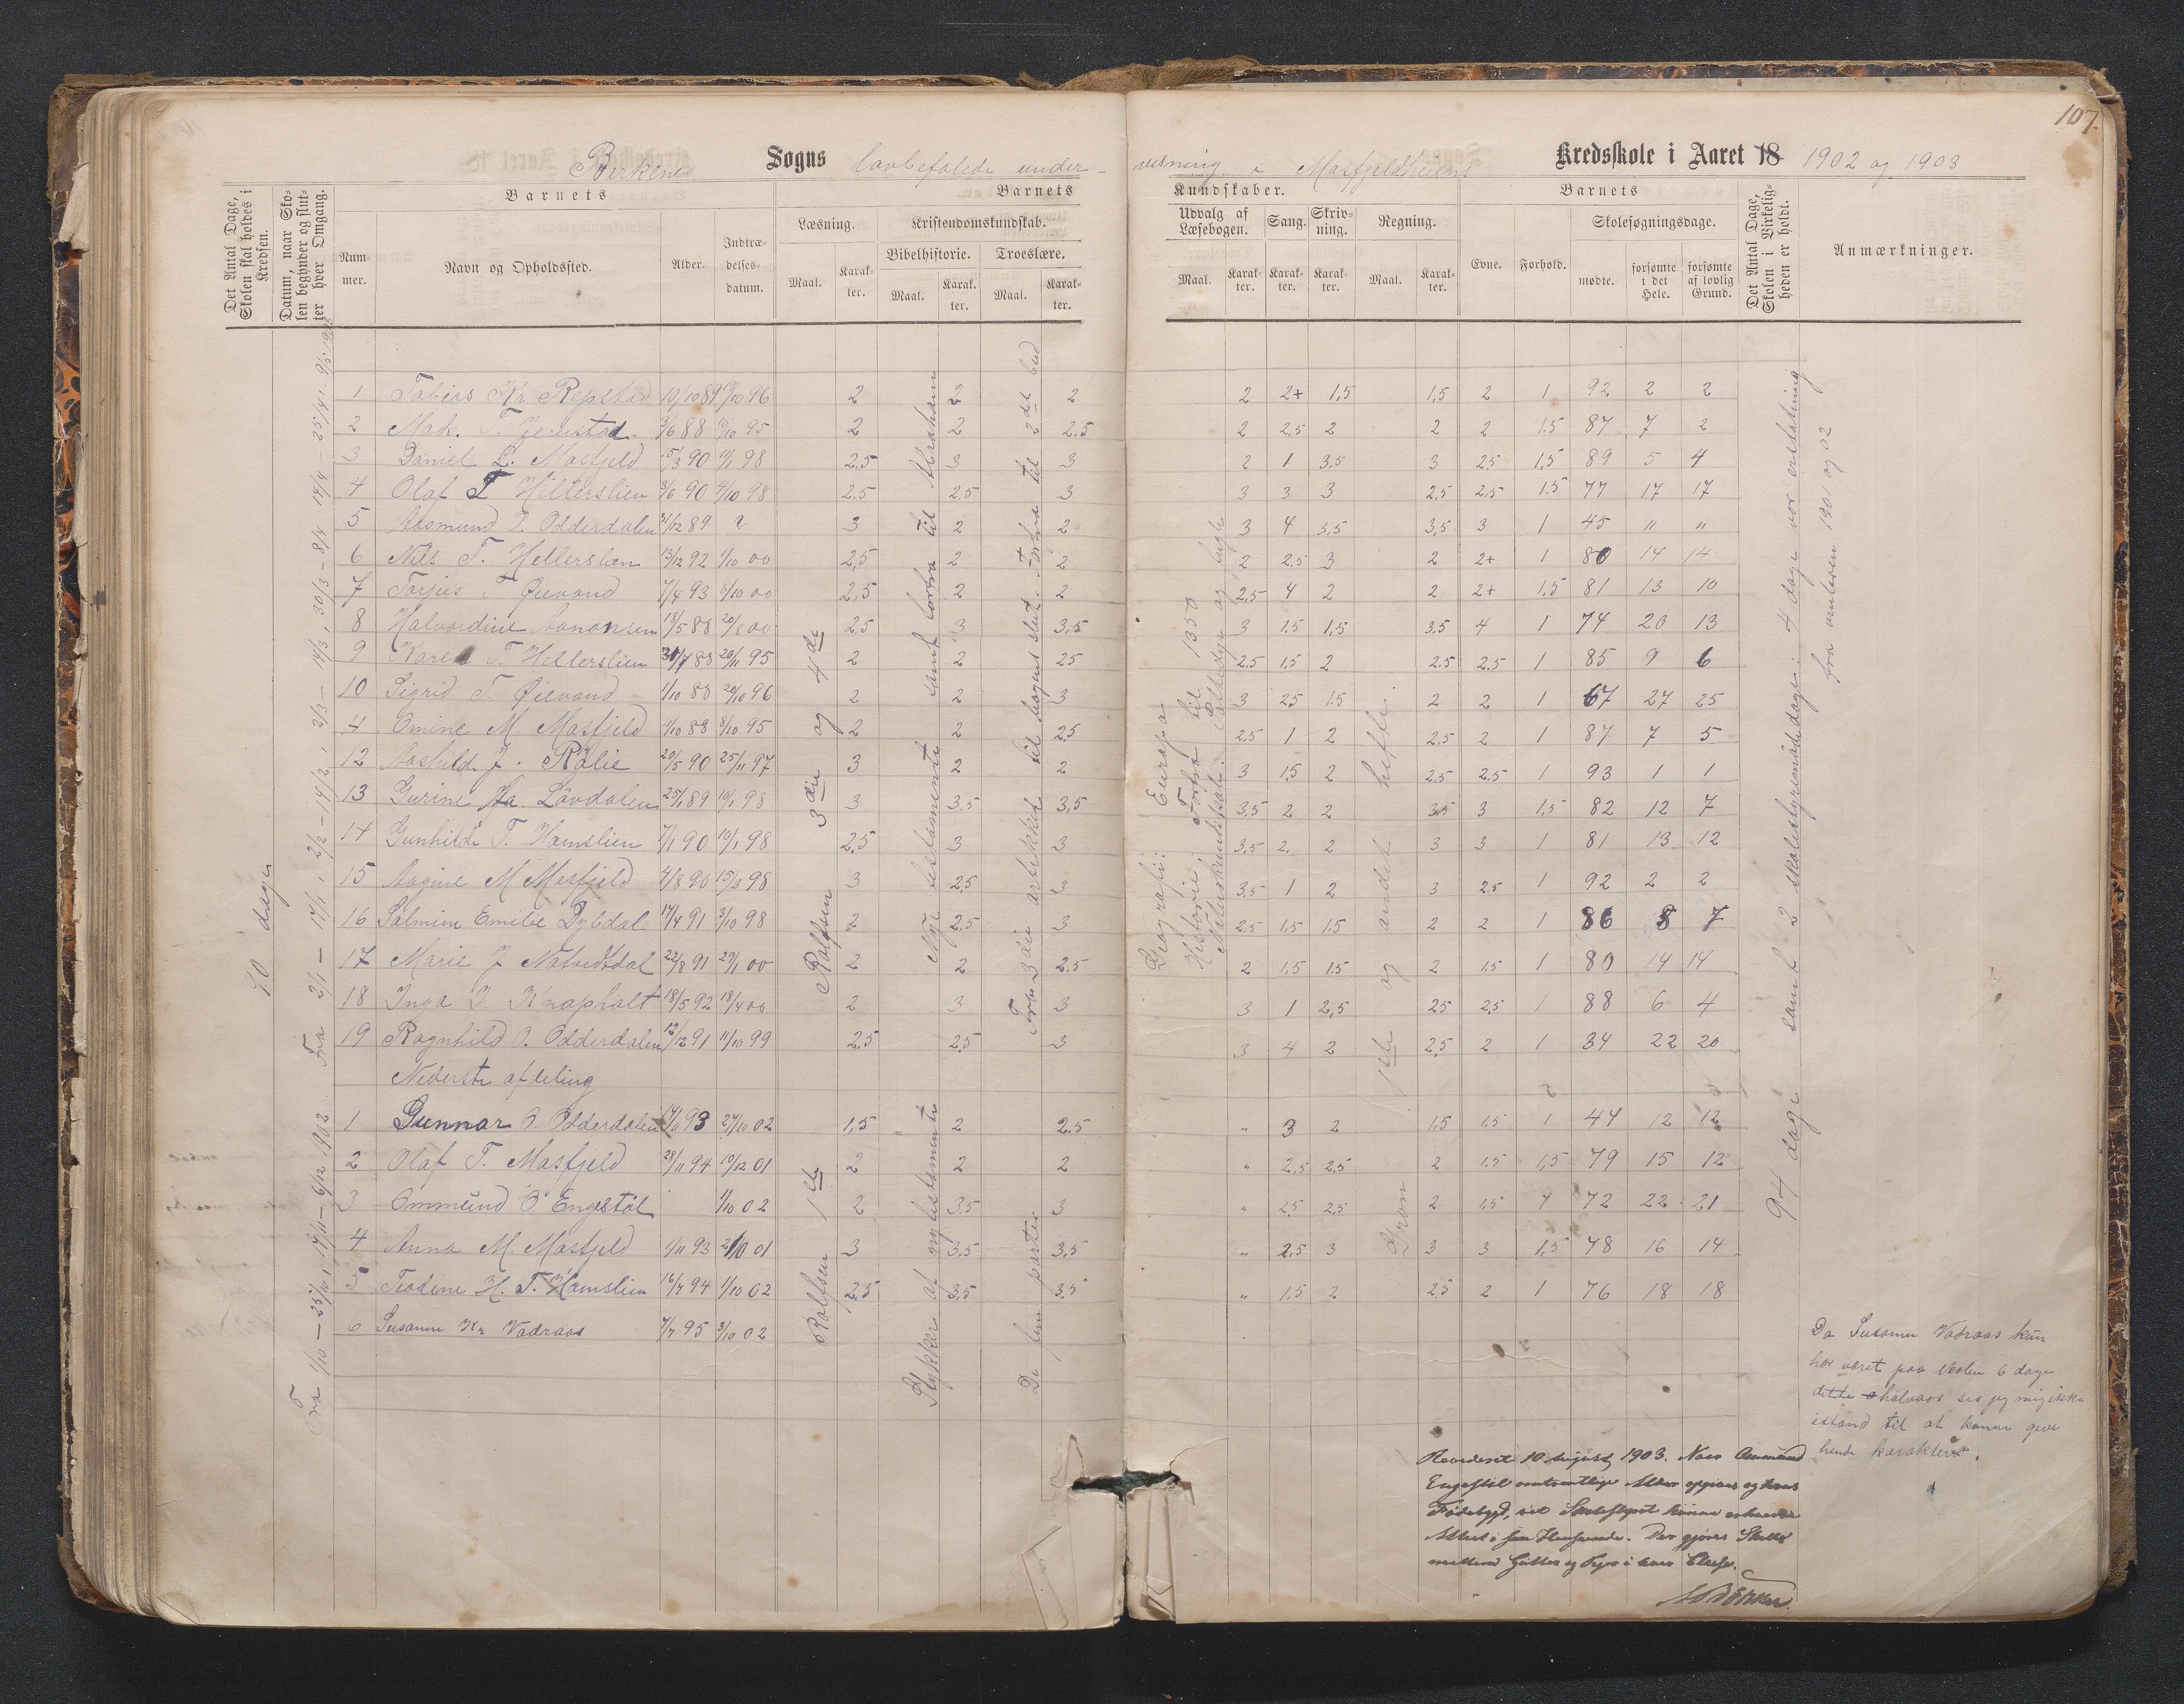 107.
Birkenes Sogns lovbefalede under-
visning i Masfjeldheiens Kredsskole i Aaret 18 1902 og 1903
Det Antal Dage, Skolen skal holdes i Kredsen.
Datum, naar Skolen begynder og slutter hver Omgang.
Barnets
Nummer.
Navn og Opholdssted.
Alder.
Indtrædelsesdatum.
Barnets
Læsning.
Maal. Karakter.
Kristendomskundskab.
Bibelhistorie. Troeslære.
Maal. Karakter. Maal. Karakter.
Kundskaber.
Udvalg af Læsebogen. Sang. Skrivning. Regning.
Maal. Karakter. Karakter. Karakter. Maal. Karakter.
Barnets
Evne. Forhold.
Skolesøgningsdage.
mødte. forsømte i det Hele. forsømte af lovlig Grund.
Det Antal Dage, Skolen i Virkeligheden er holdt.
Anmærkninger.
1 Tobias Kr Repstad 10/10 89 /10 96 2 2 2 2 2+ 1,5 1,5 2 1 92 2 2
2 3/6 88 /10 95 2 2 2.5 2 2,5 2 2 2 1.5 87 7 2
3 Daniel L. Masfjeld 15/3 90 11/1 98 2,5 3 3 2 1 3,5 3 2,5 1,5 89 5 4
4 Olaf T Hillerslien 3/6 90 4/10 98 2,5 2,5 3 3 3 3 2,5 2,5 1.5 77 17 17
5 Aasmund O. Odderdalen 31/12 89 ? 3 2 2 3 4 3,5 3,5 3 1 45 " "
6 Nils T. Hellerslien 13/12 92 1/10 00 2,5 2 2 2 2.5 3 2 2+ 1 80 14 14
7 Torjus T Øievand 7/4 93 8/10 00 2.5 2 2 2,5 4 2 2 2+ 1.5 81 13 10
8 Halvardine Aanonsen 18/5 88 20/8 00 2.5 3 3,5 3 1.5 1,5 3,5 4 1 74 20 13
9 Karen T. Hellerslien 31/7 88 20/11 95 2 2 25 2.5 1,5 2 2.5 2.5 1 85 9 6
10 Sigrid T. Øievand 1/10 88 20/10 96 2 2 3 3 2,5 1.5 2 2 1 67 27 25
4 Omine M. Masfjeld 11/10 88 8/10 95 2 2 2.5 2.5 1 2 2.5 2 1 87 7 5
12 Aashilde J. Rålie 20/5 90 25/11 97 3 2 2 3 1,5 2 2.5 2.5 1 93 1 1
13 Gurine Aa. Løvdalen 25/1 89 10/1 98 3 3.5 3,5 3,5 2 2 3,5 3 1,5 82 12 7
14 Gunhilde T. Hamslien 7/1 90 10/1 98 2,5 3 3 3,5 2. 2 3 3 1 81 13 12
15 Aagine M Masfjeld 4/8 90 15/3 98 3 2,5 3 3,5 1 2 3 2.5 1 92 2 2
16 Salmine Emilie Dybdal 17/4 91 3/10 98 2 2.5 3 2.5 1.5 1.5 2 2 1 86 8 7
17 Marie J. 22/8 91 29/1 00 2 2 2.5 2 1,5 1.5 2 1.5 1 80 14 14
18 Inga J. Knapholt 18/5 92 18/4 00 2 3 3 3 1 2,5 2,5 2,5 1 88 6 4
19 Ragnhild O. Odderdalen 12/12 91 11/10 99 2,5 2.5 3 3 4 2 2,5 2 1 34 22 20
Nederste afdeling
1 Gunnar O. Odderdalen 93 27/10 02 1,5 2 2.5 " 3 2 1,5 1.5 1 44 12 12
2 Olaf T. Masfjeld 28/11 94 10/12 01 2 2 2 " 2,5 2,5 2 1.5 1,5 79 15 12
3 Ommund O Engestöl 1/10 02 2 3.5 3 " 2,5 2,5 2 1.5 1 72 22 21
4 Anna M. Masfjeld 1/11 93 01 3 3,5 3,5 " 2.5 3 3 3 1,5 78 16 14
5 Teodine H. T. Hamslien 16/7 94 1/10 02 2,5 3,5 3.5 " 1.5 2 2.5 2 1 76 18 18
6 Susanne Kr Vadraas 7/7 95 3/10 02
dage
Fra 1/10 – 25/10, 17/11 – 6/12 1902
Fra 2/1 – 17/1, 2/2 – 14/2, 2/3 – 14/3, 30/3 – 8/4, 14/4 – 25/4
Rolfsen 3die og 4de
Rolfsen 1ste
Nye testamente samt forfra til Abraham
Stykker af nytestamente
Fra 3die artikkel til bogens slut. Forfra til 2det bud
De fem parter
Geografi: Europa
Historie: Forfra til 1350
Naturkundskab: Pattedyr og fugle
1ste og andet hefte
94 dage samt 2 skolestyremødedage: 4 dage var erstatning
fra vinteren 1901 og 02
Da Susanne Vadraas kun
har været paa skolen 6 dage
dette halvaar ser jeg mig ikke
istand til at kunne give
hende karakterer.
Revideret 10 august 1903. Naar Ommund
Engestöl Alder opgives og hans
Fødebygd, vil Skolestyret kunne erhverve
Attest i saa Henseende. Der gjøres Skille
mellem Gutter og Piger i hver Classe.